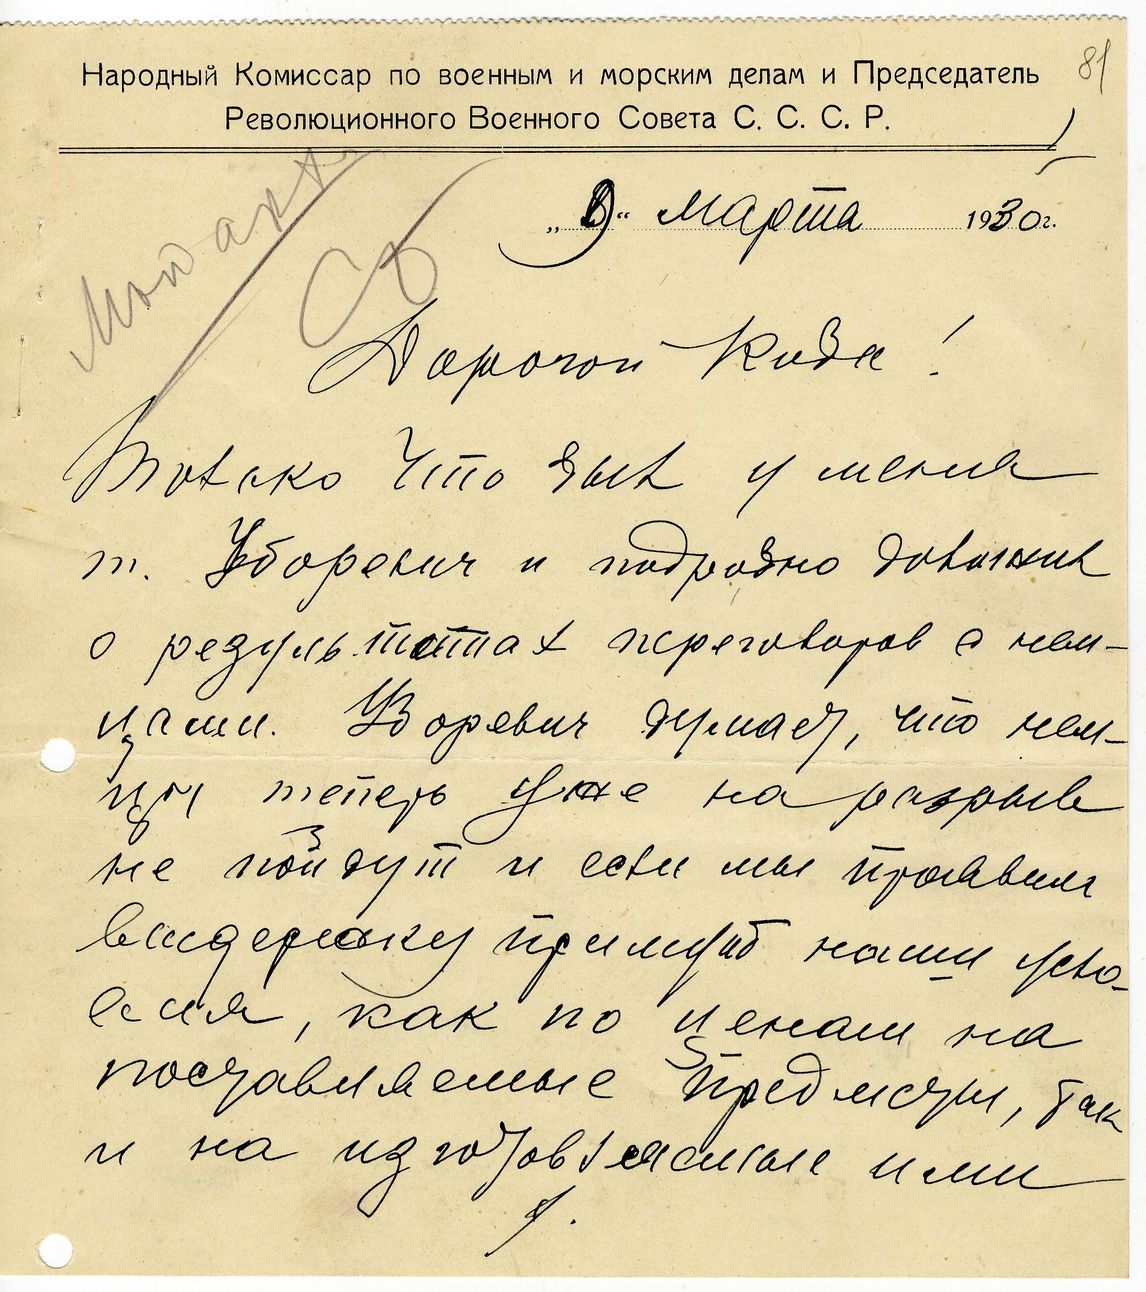 81
Народный Комиссар по военным и морским делам и Председатель
Революционного Военного Совета С. С. С. Р.
„ “ Марта 1930 г.
Дорогой Коба!
Только что был у меня
т. Уборевич и подробно доложил
о результатах переговоров с нем-
цами. Уборевич думает, что нем-
цы теперь уже на разрыв
не пойдут и если мы проявим
выдержку примут наши усло-
вия, как по ценам на
поставляемые предметы, так
и на изготовляемые ими
1.